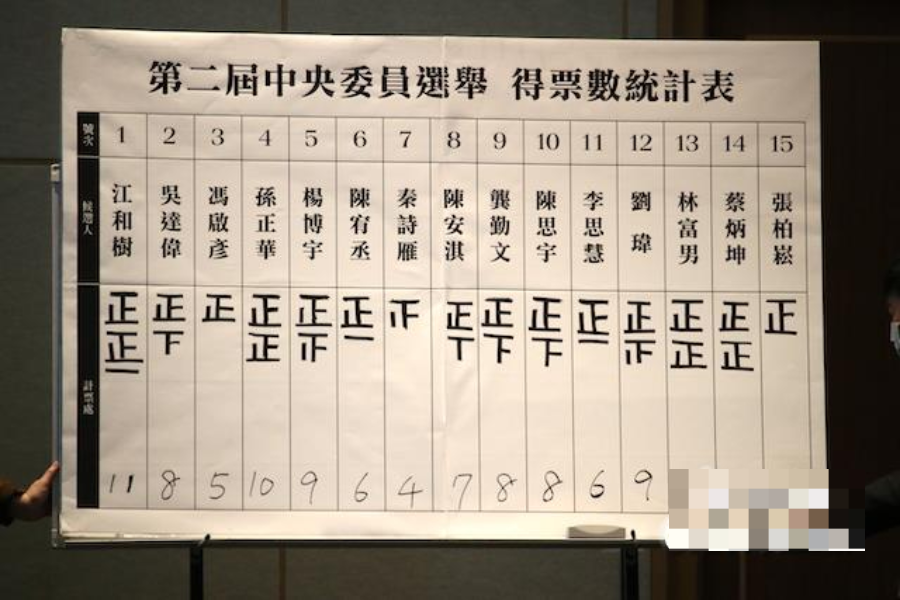 第二屆中央委員選舉 得票數統計表
號次 1 2 3 4 5 6 7 8 9 10 11 12 13 14 15
候選人 江和樹 吳達偉 馮啟彥 孫正華 楊博宇 陳宥丞 秦詩雁 陳安淇 龔勤文 陳思宇 李思慧 劉瑋 林富男 蔡炳坤 張柏崧
計票處 正 正 正 正 正 正 正 正 正 正 正 正 正 正
正 正 正 正
11 8 5 10 9 6 4 7 8 8 6 9